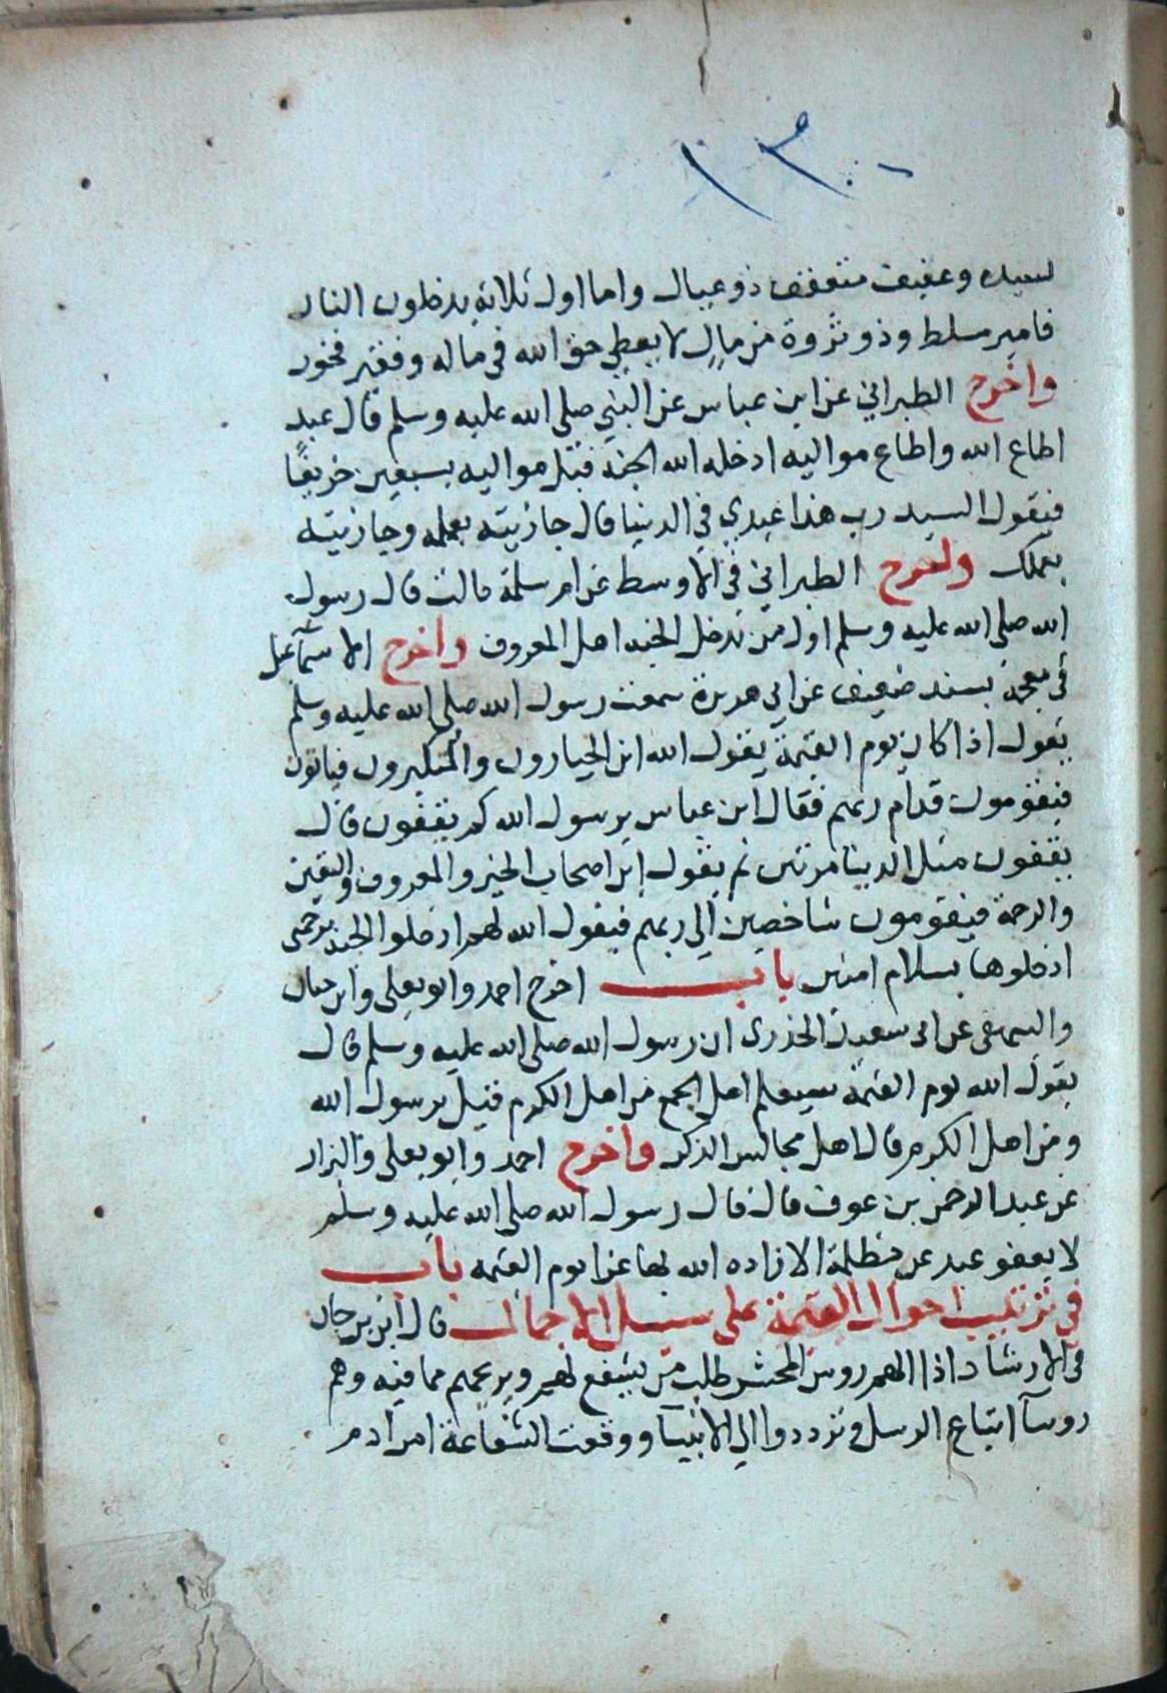 ١٣٠
لسيده وعفيف متعفف ذو عيال واما اول ثلاثة يدخلون النار
فامير مسلط وذو ثروة من مال لا يعطي حق الله في ماله وفقير فخور
واخرج الطبراني عن ابن عباس عن النبي صلى الله عليه وسلم قال عبد
اطاع الله واطاع مواليه ادخله الله الجنة قبل مواليه بسبعين خريفا
فيقول السيد رب هذا عبدي في الدنيا قال جازيته بعمله وجازيتك
بعملك واخرج الطبراني في الاوسط عن ام سلمة قالت قال رسول
الله صلى الله عليه وسلم اول من يدخل الجنه اهل المعروف واخرج الاسماعيلي
في معجمه بسند ضعيف عن ابي هريرة سمعت رسول الله صلى الله عليه وسلم
يقول اذا كان يوم القيمة يقول الله اين الجبارون والمتكبرون فياتون
فيقومون قدام ربهم فقال ابن عباس يرسول الله كم يقفون قال
يقفون مثل الدينا مرتين ثم يقول اين اصحاب الخير والمعروف واليقين
والرحمة فيقومون شاخصين الي ربهم فيقول الله لهم ادخلوا الجنة برحمتي
ادخلوها بسلام امنين باب اخرج احمد وابو يعلى وابن حبان
والبيهقي عن ابي سعيد الخدري ان رسول الله صلى الله عليه وسلم قال
يقول الله يوم القيمة سيعلم اهل الجمع من اهل الكرم فقيل يرسول الله
ومن اهل الكرم قال اهل مجالس الذكر واخرج احمد وابو يعلى والبزار
عن عبد الرحمن بن عوف قال قال رسول الله صلى الله عليه وسلم
لا يعفو عبد عن مظلمة الا زاده الله بها عزا يوم القيمه باب
في ترتيب احوال القيمة على سبيل الاجمال قال ابن برجان
في الارشاد اذا الهم روس المحشر طلب من يشفع لهم ويريحهم مما فيه وهم
روسآ اتباع الرسل وترددوا الي الانبيآ ووقعت الشفاعة امر ادم